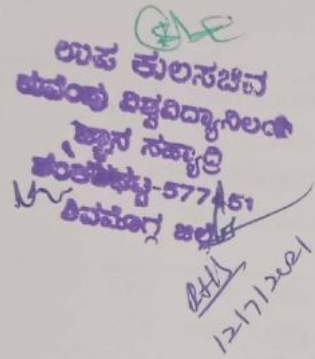 ಉಪ ಕುಲಸಚಿವ
ಕುವೆಂಪು ವಿಶ್ವವಿದ್ಯಾನಿಲಯ
ಜ್ಞಾನ ಸಹ್ಯಾದ್ರಿ
ಶಂಕರಘಟ್ಟ-577451
ಶಿವಮೊಗ್ಗ ಜಿಲ್ಲೆ
12/7/2021